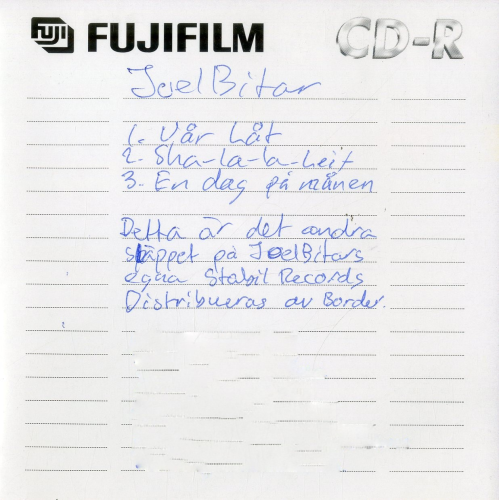 FUJI FUJIFILM CD-R
Joel Bitar
1. Vår låt
2. Sha-la-la-leif
3. En dag på månen
Detta är det andra
släppet på Joel Bitars
egna Stabil Records
Distribueras av Border.